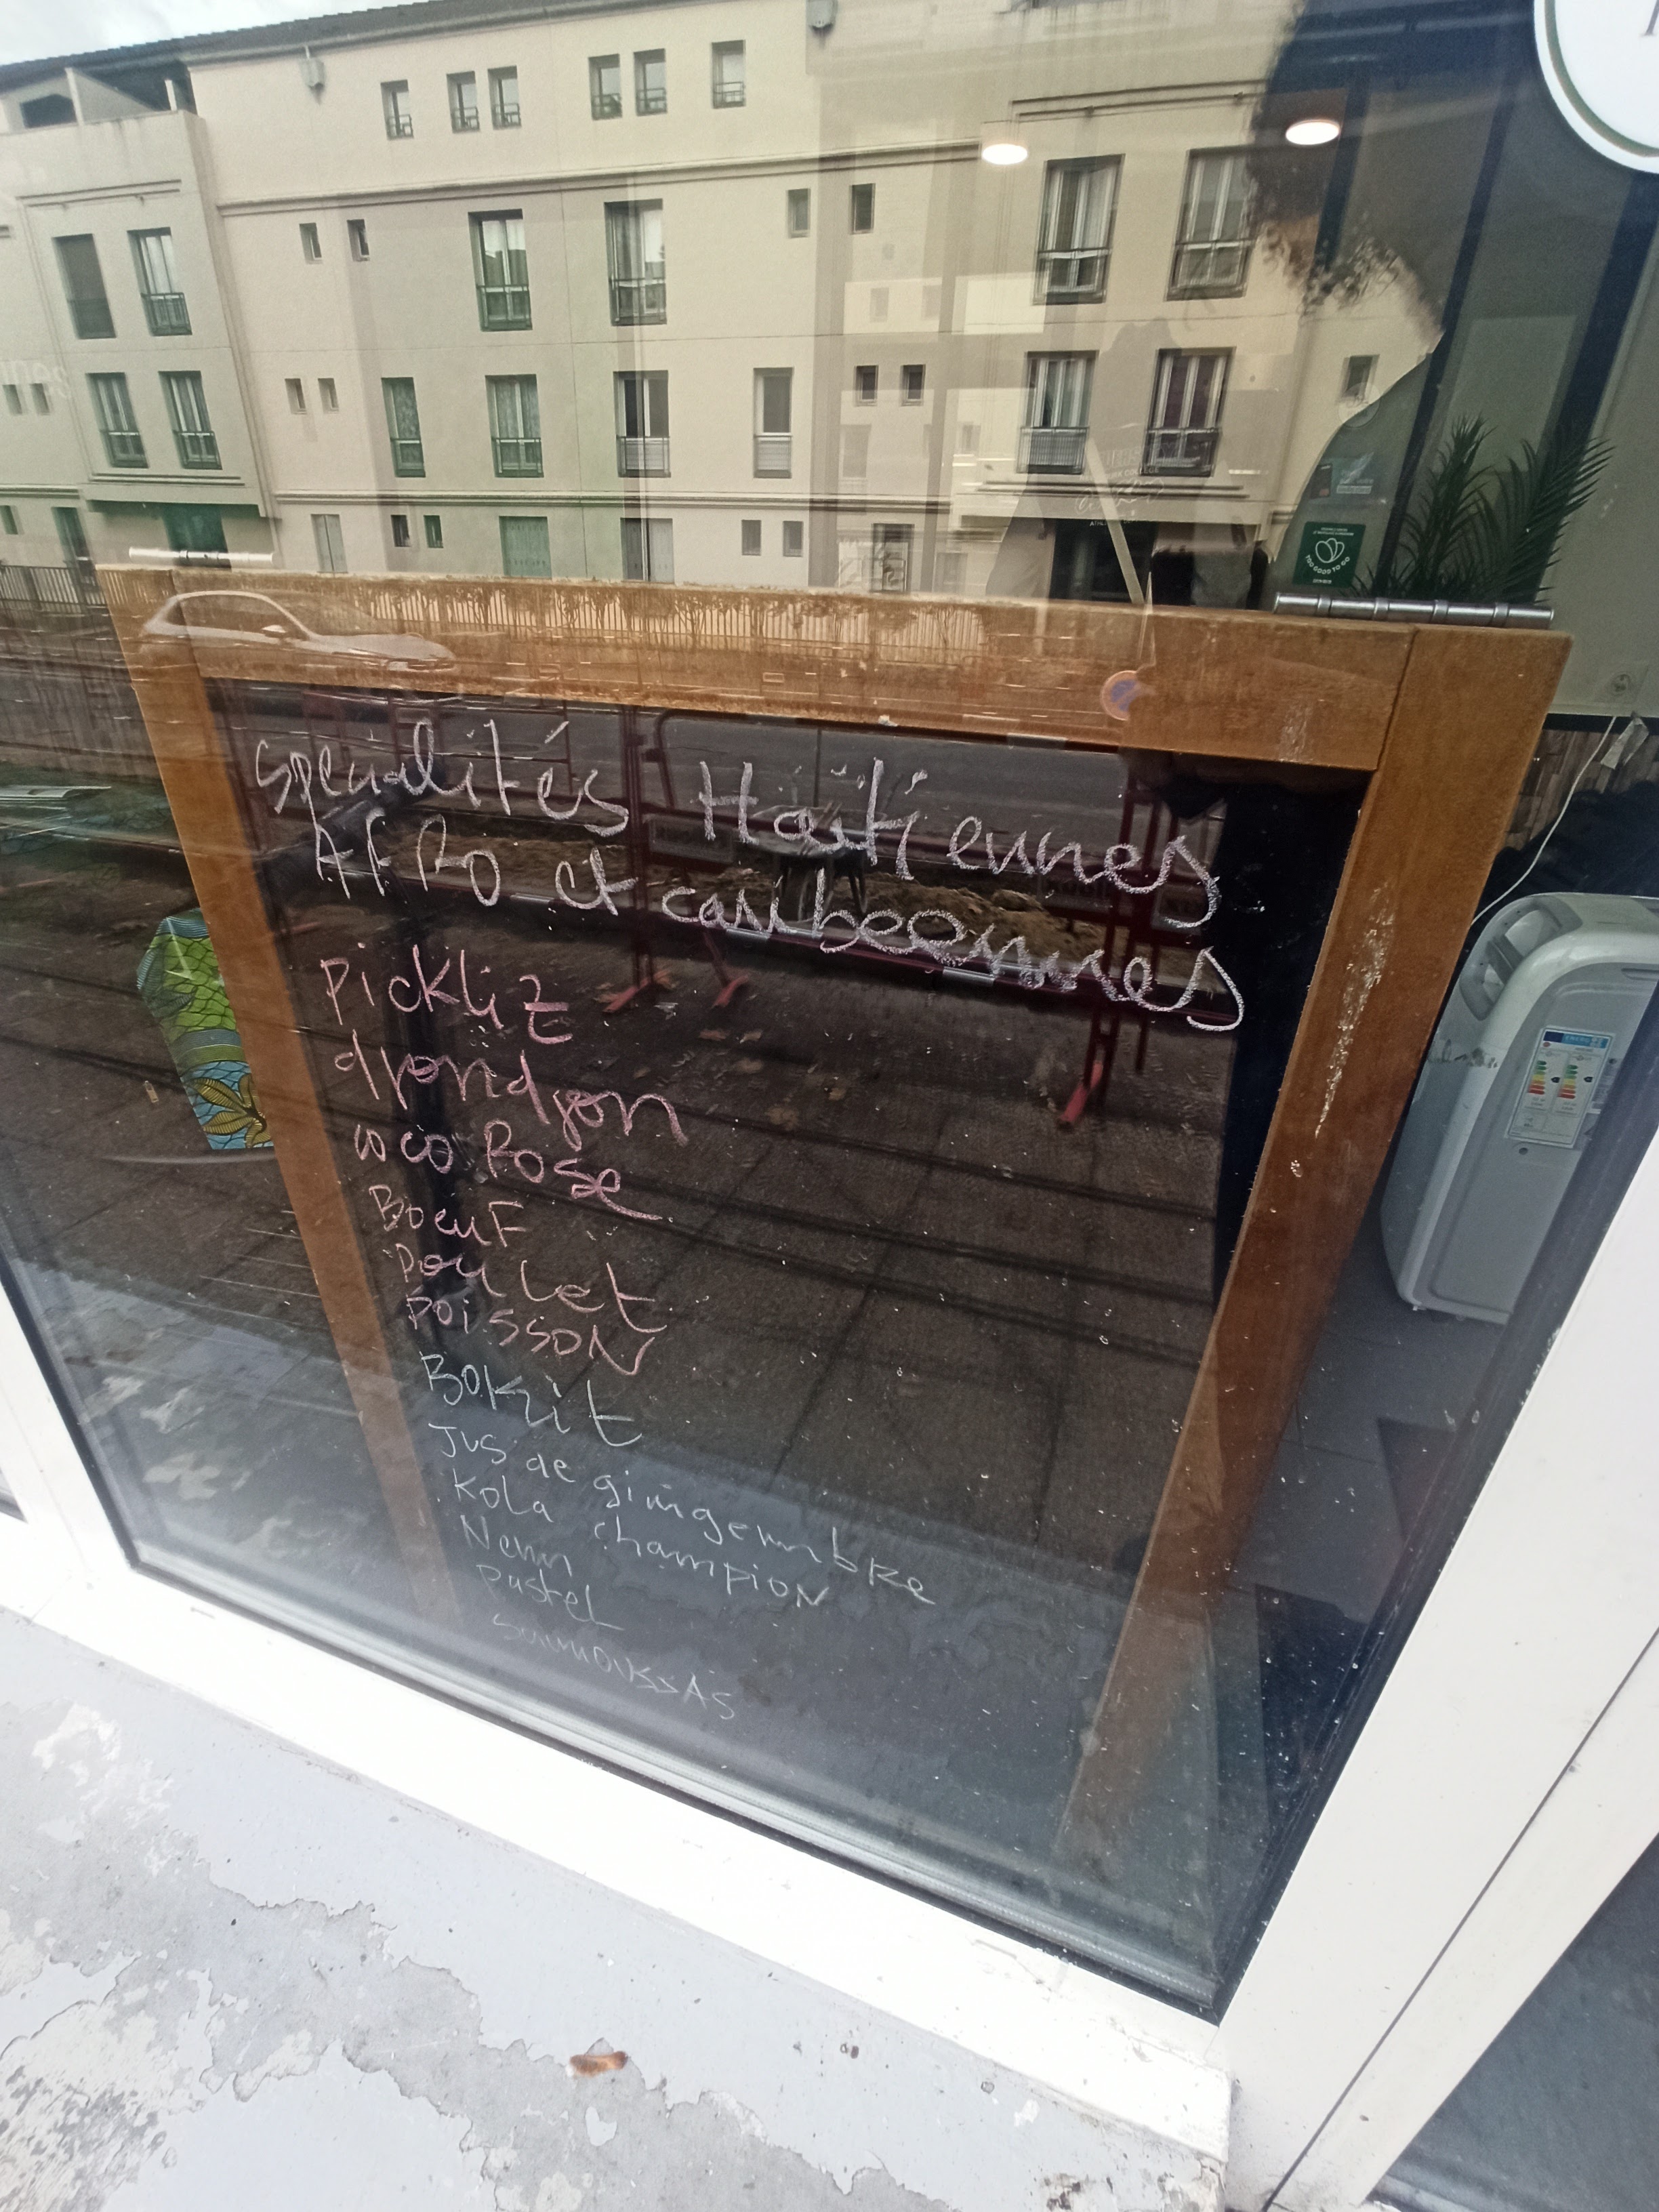 Spécialités Haïtiennes
AFRO et caribeennes
Pickliz
djondjon
coco Rose
BoeuF
Poulet
POISSON
BOKit
Jus de gingembre
Kola champion
Nem
PasteL
SamoussAS
TOO GOOD TO GO